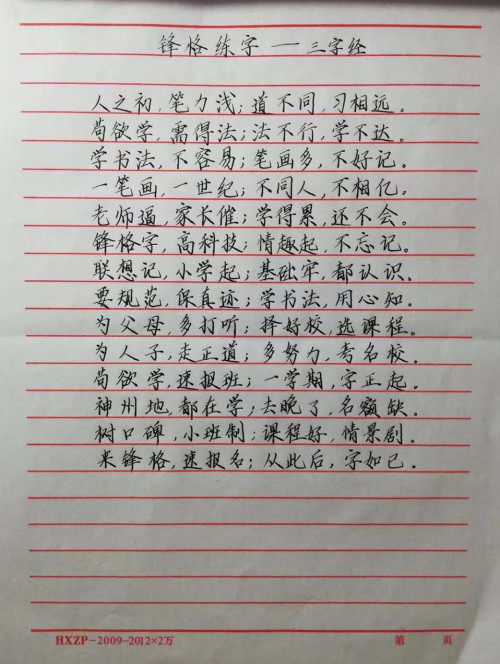 锋格练字——三字经
人之初,笔力浅;道不同,习相远。
苟欲学,需得法;法不行,学不达。
学书法,不容易;笔画多,不好记。
一笔画,一世纪;不同人,不相亿。
老师逼,家长催;学得累,还不会。
锋格字,高科技;情趣起,不忘记。
联想记,小学起;基础牢,都认识。
要规范,保真迹;学书法,用心知。
为父母,多打听;择好校,选课程。
为人子,走正道;多努力,考名校。
苟欲学,速报班;一学期,字正起。
神州地,都在学;去晚了,名额缺。
树口碑,小班制;课程好,情景剧。
来锋格,速报名;从此后,字如己。
HXZP-2009-2012×2万 第 页